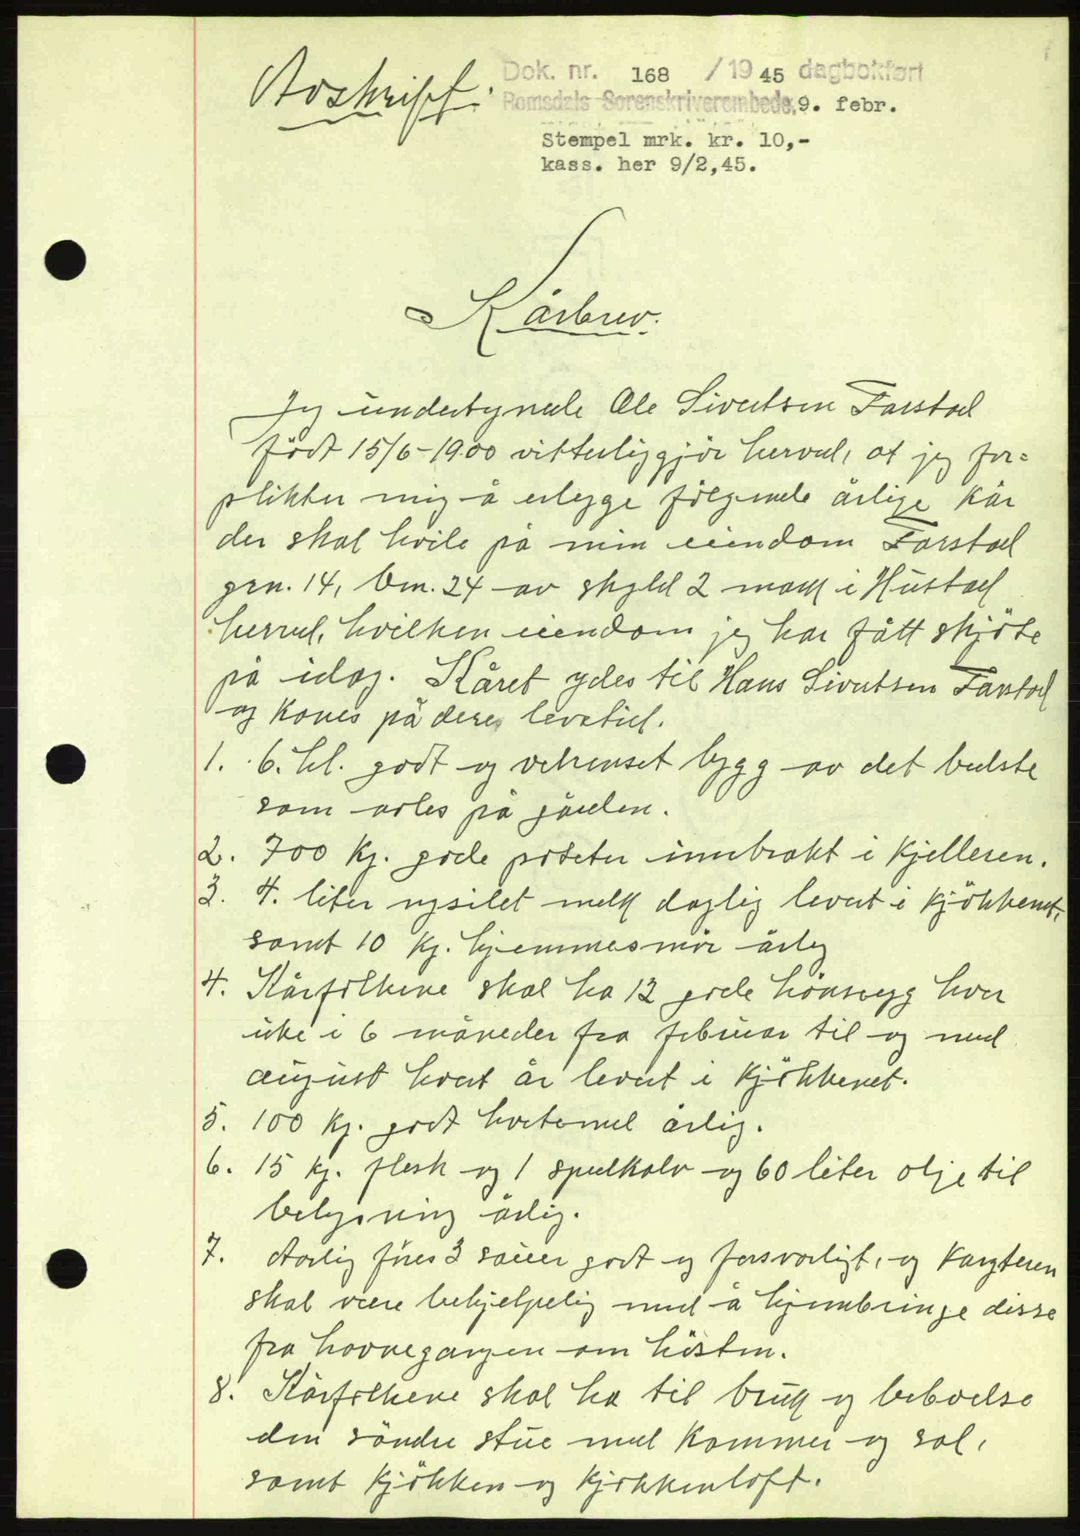 Avskrift:
Dok. nr. 168 / 1945 dagbokført
Romsdals Sorenskriverembede, 9. febr.
Stempel mrk. kr. 10,-
kass. her 9/2,45.
Kårbrev.
Jeg undertegnede Ole Sivertsen Farstad
født 15/6-1900 vitterliggjör herved, at jeg for=
plikter mig å erlegge fölgende årlige kår
der skal hvile på min eiendom Farstad
grn. 14, bn. 24 av skyld 2 mark i Hustad
herred, hvilken eiendom jeg har fått skjöte
på idag. Kåret ydes til Hans Sivertsen Farstad
og kones på deres levetid.
1. 6. hl. godt og velrenset bygg av det bedste
som avles på gården.
2. 700 kg. gode poteter innbrakt i kjelleren.
3. 4. liter nysilet melk daglig levert i kjökkenet,
samt 10 kg. hjemmesmör årlig
4. Kårfolkene skal ha 12 gode hönseegg hver
uke i 6 måneder fra februar til og med
august hvert år levert i kjökkenet.
5. 100 kg. godt hvetemel årlig.
6. 15 kg. flesk og 1 spedkalv og 60 liter olje til
belysning årlig.
7. Aarlig föres 3 sauer godt og forsvarligt, og kargiveren
skal være behjelpelig med å hjembringe disse
fra havnegangen om hösten.
8. Kårfolkene skal ha til bruk og beboelse
den söndre stue med kammer og sal,
samt kjökken og kjökkenloft.